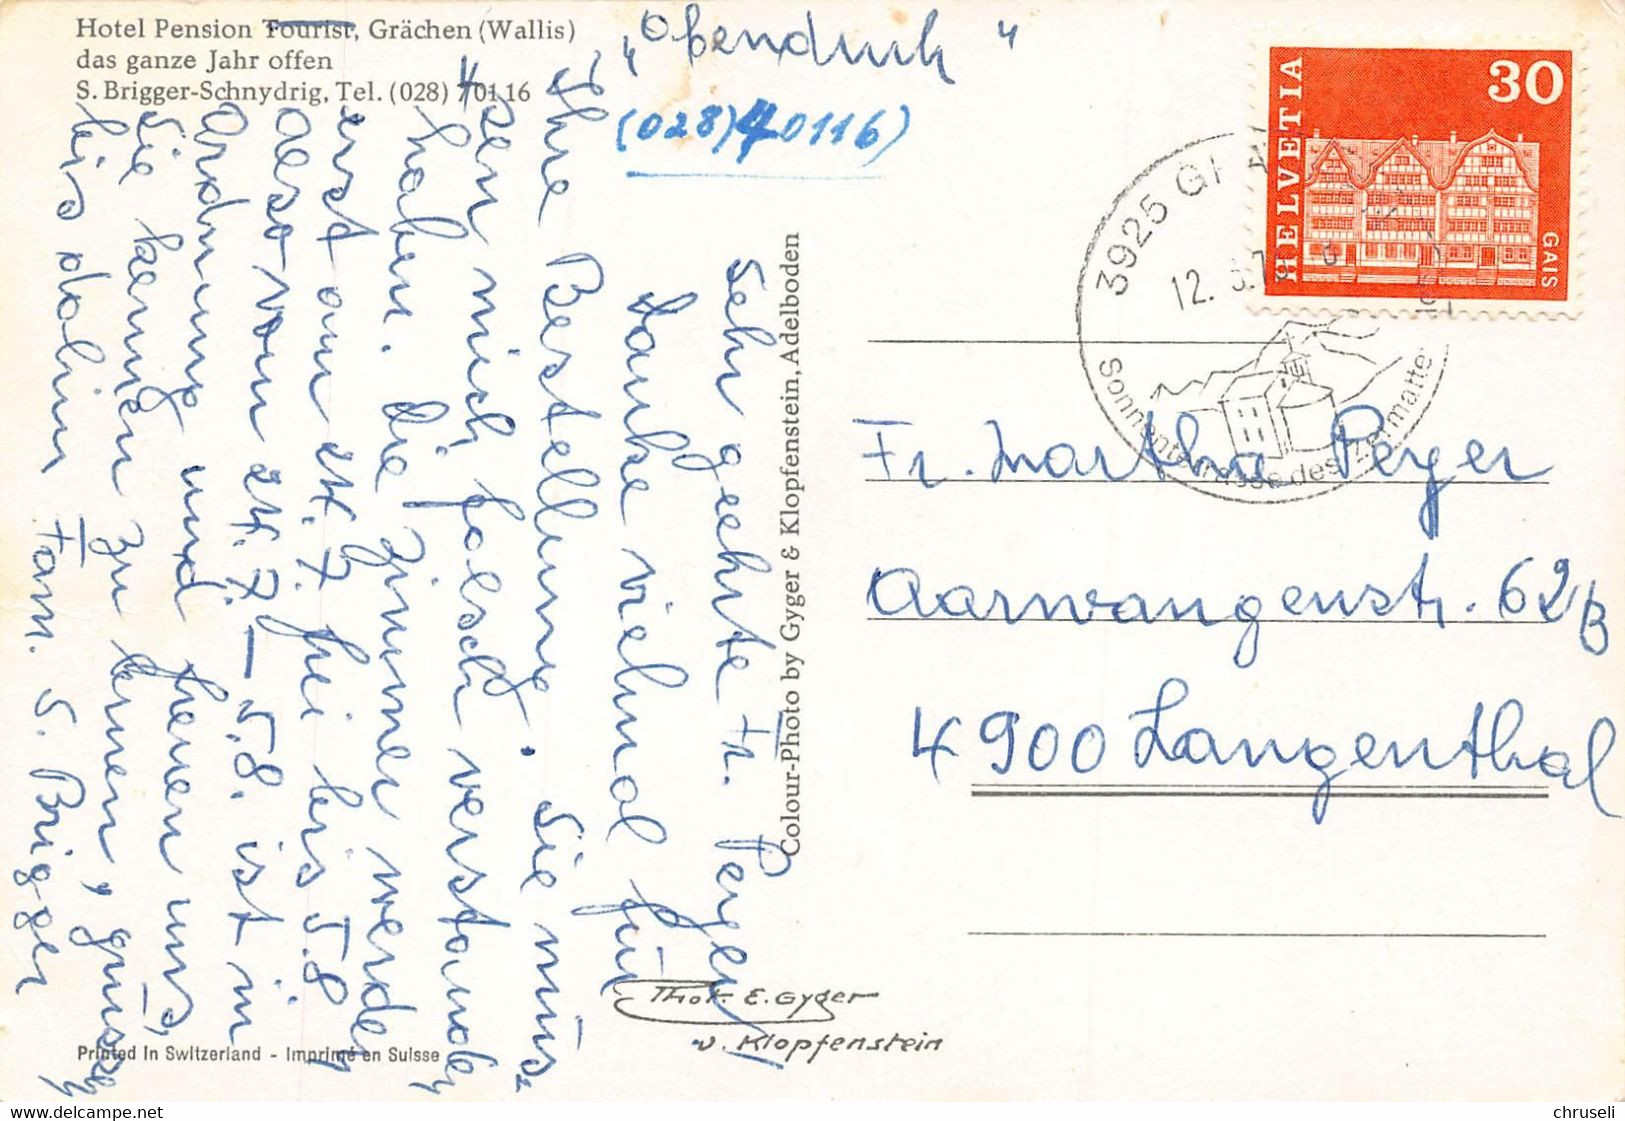 Hotel Pension Tourist, Grächen (Wallis)
das ganze Jahr offen
S. Brigger-Schnydrig, Tel. (028) 7 01 16
4
(028) 4 0116)
Sehr geehrte Fr. Peyer
Danke vielmal für
Ihre Bestellung. Sie müs-
sen mich falsch verstanden
haben. Die Zimmer werden
erst am 24. 7. frei bis 5.8
also vom 24. 7. – 5.8. ist in
Ordnung und freuen uns,
Sie kennen zu lernen, grüsse
bis dahin Fam. S. Brigger
Colour-Photo by Gyger & Klopfenstein, Adelboden
Printed in Switzerland - Imprimé en Suisse
Phot. E. Gyger
u. Klopfenstein
HELVETIA
30
GAIS
3925 G
12.
Sonnenterrasse des Zermatte
Fr. Martha Peyer
Aarwangenstr. 62B
4900 Langenthal
chruseli